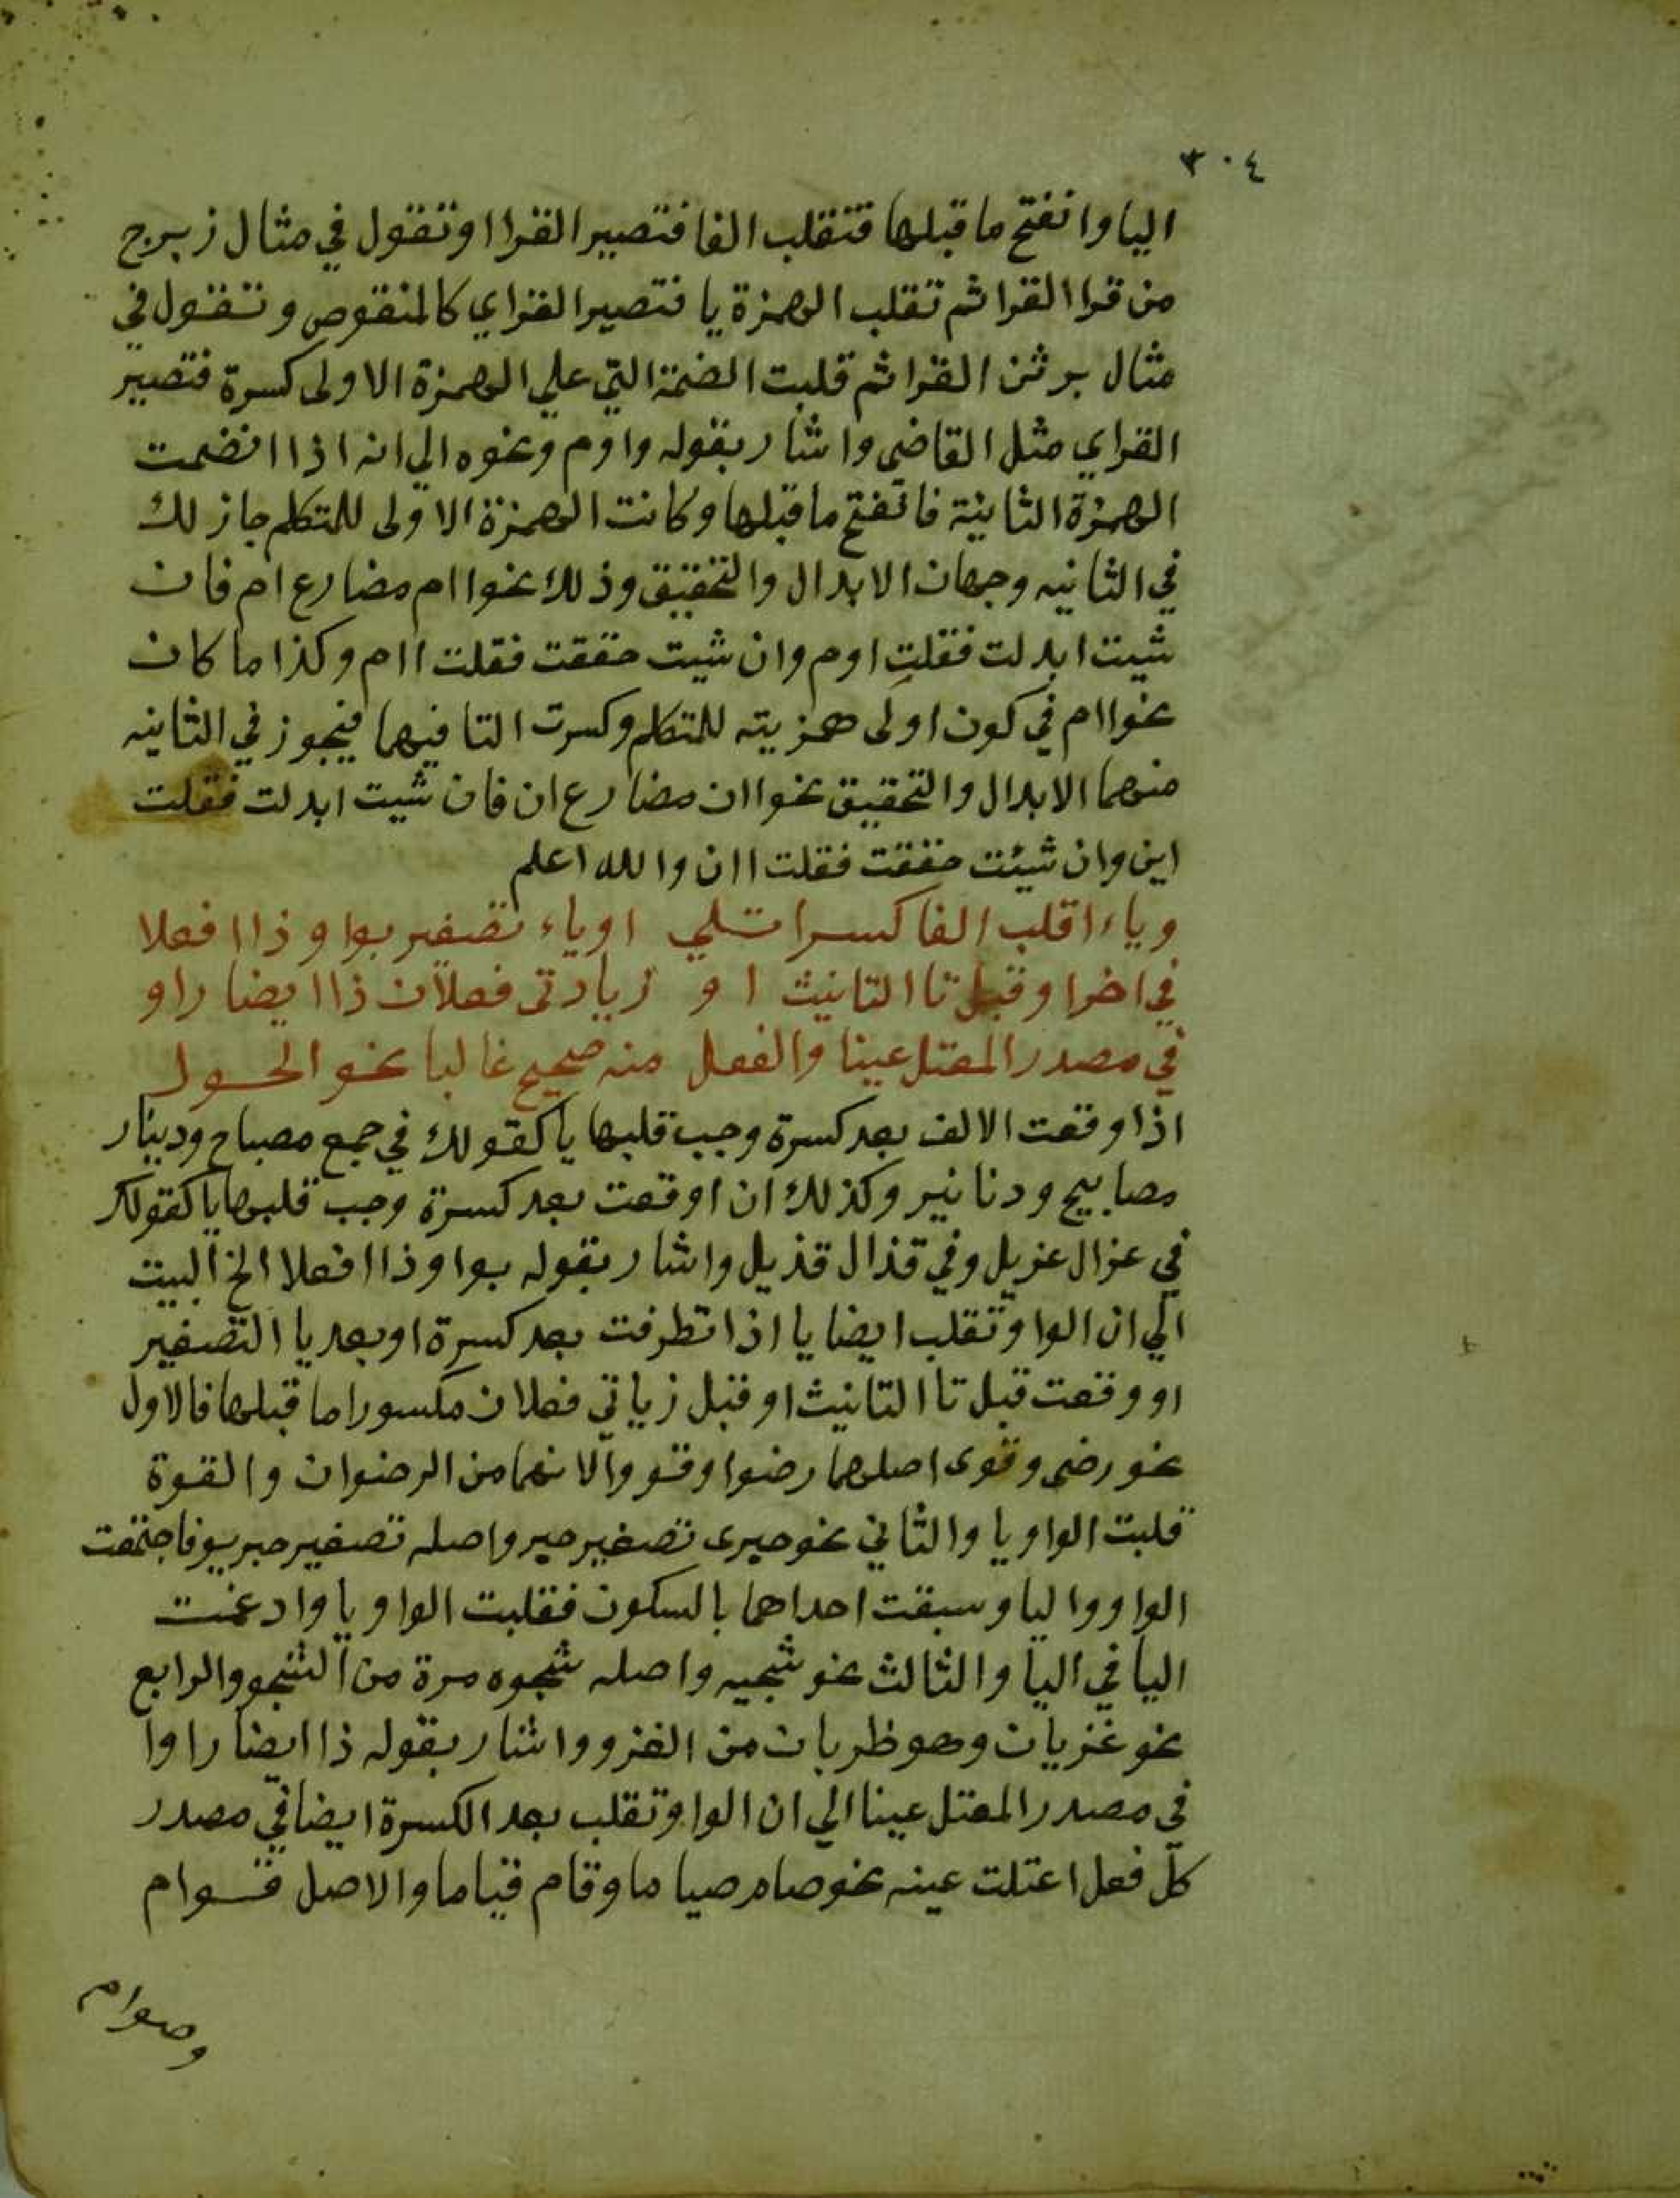 ٣٠٤
اليا وانفتح ما قبلها فتقلب الفا فتصير القرا او تقول في مثال زبرج
من قرا القرا ثم تقلب الهمزة يا فتصير القراي كالمنقوص وتقول في
مثال برثن القرا ثم قلبت الضمة التي علي الهمزة الاولى كسرة فتصير
القراي مثل القاضي واشار بقوله واوم ونحوه الي انه اذا انضمت
الهمزة الثانية فانفتح ما قبلها وكانت الهمزة الاولى للمتكلم جاز لك
في الثانيه وجهان الابدال والتحقيق وذلك نحو اام مضارع ام فان
شيت ابدلت فقلت اوم وان شيت حققت فقلت اام وكذا ما كان
نحو اام في كون اولى همزيته للمتكلم وكسرت التا فيهما فيجوز في الثانيه
منهما الابدال والتحقيق نحو اان مضارع ان فان شيت ابدلت فقلت
اين وان شيئت حققت فقلت اان والله اعلم
وياء اقلب الفا كسرا تلي او ياء تصغير بواو ذا افعلا
في اخر او قبل تا التانيث او زيادتى فعلان ذا ايضا راو
في مصدر المعتل عينا والفعل منه صحيح غالبا نحو الحول
اذا وقعت الالف بعد كسرة وجب قلبها يا كقولك في جمع مصباح ودينار
مصابيح ودنانير وكذلك ان اوقعت بعد كسرة وجب قلبها يا كقولك
في غزال غزيل وفي قذال قذيل واشار بقوله بواو ذا افعلا الخ البيت
الي ان الواو تقلب ايضا يا اذا تطرفت بعد كسرة او بعد يا التصغير
او وقعت قبل تا التانيث او قبل زياتي فعلان مكسورا ما قبلها فالاول
نحو رضى وقوى اصلهما رضوا وقووا لانهما من الرضوان والقوة
قلبت الواو يا والثاني نحو جرى تصغير جر واصله تصغير جريو فاجتمعت
الواو واليا وسبقت احداهما بالسكون فقلبت الواو يا وادغمت
اليا في اليا والثالث نحو شجيه واصله شجوه مرة من الشجو والرابع
نحو غزيان وهو ظربان من الغزو واشار بقوله ذا ايضا راوا
في مصدر المعتل عينا الي ان الواو تقلب بعد الكسرة ايضا في مصدر
كل فعل اعتلت عينه نحو صام صياما وقام قياما والاصل قوام
وصوام